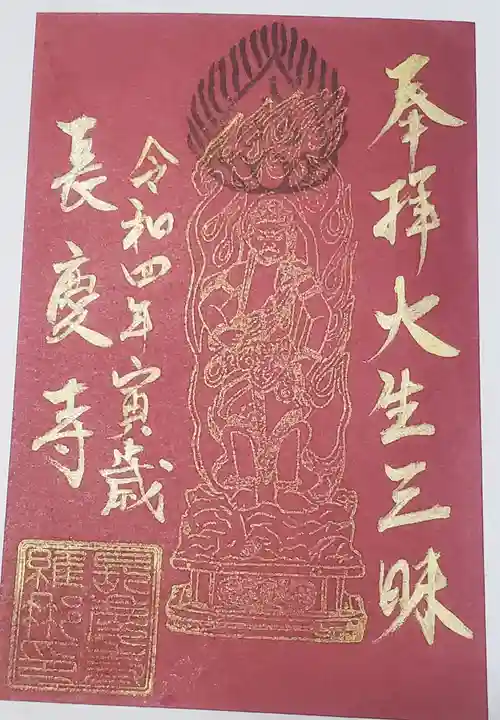 奉拝 火生三昧
令和四年 寅歳
長慶寺